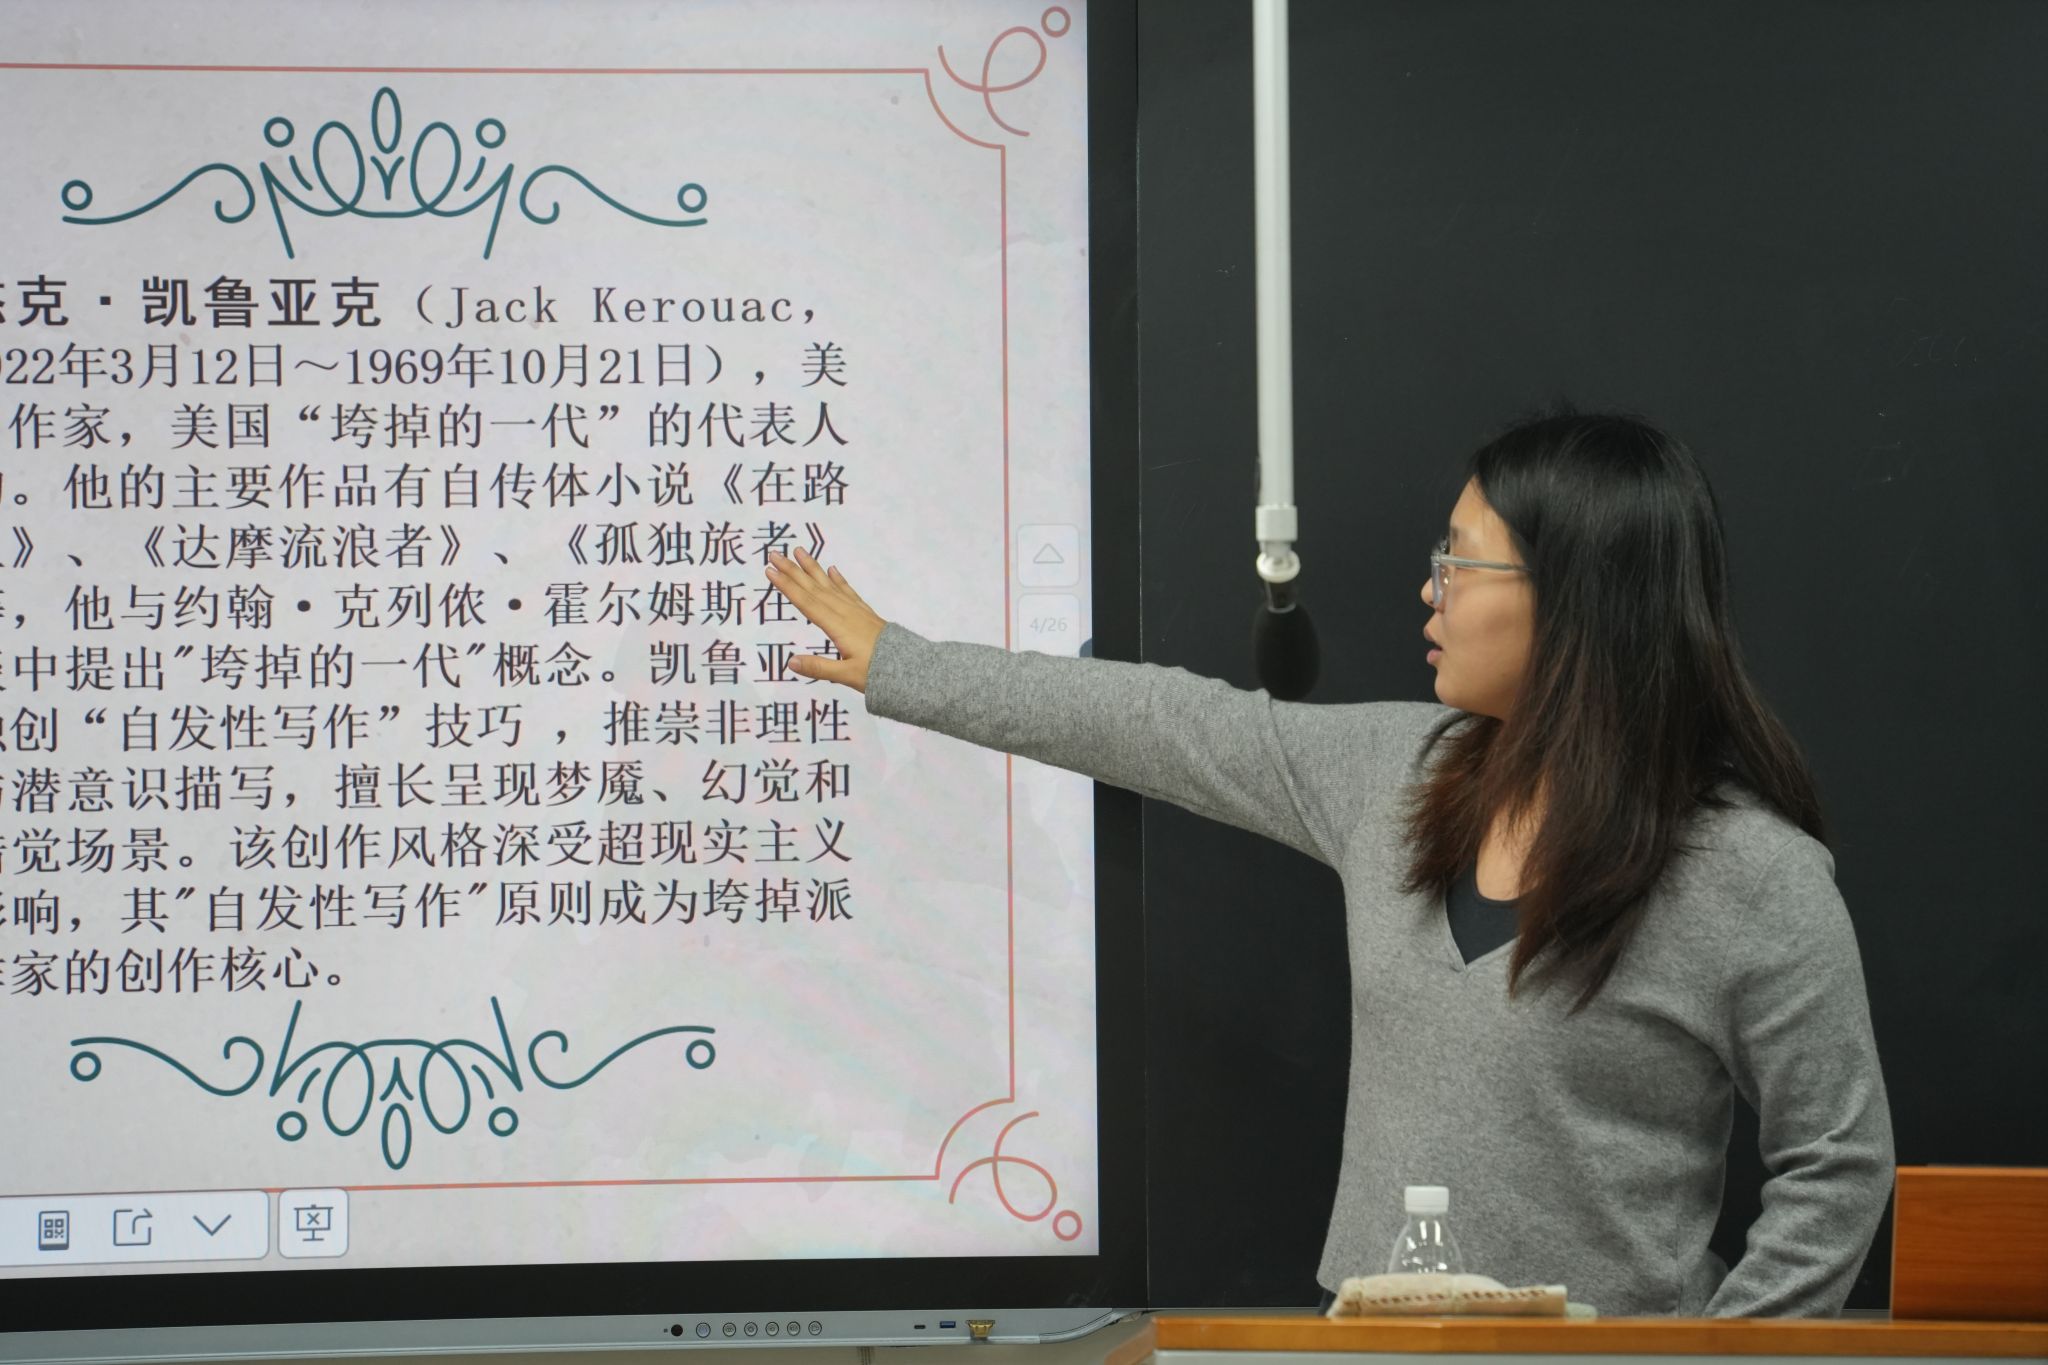 克·凯鲁亚克（Jack Kerouac，
22年3月12日～1969年10月21日），美
作家，美国“垮掉的一代”的代表人
。他的主要作品有自传体小说《在路
》、《达摩流浪者》、《孤独旅者》
，他与约翰·克列侬·霍尔姆斯在
中提出"垮掉的一代"概念。凯鲁亚克
创“自发性写作”技巧，推崇非理性
潜意识描写，擅长呈现梦魇、幻觉和
觉场景。该创作风格深受超现实主义
响，其"自发性写作"原则成为垮掉派
家的创作核心。
4/26